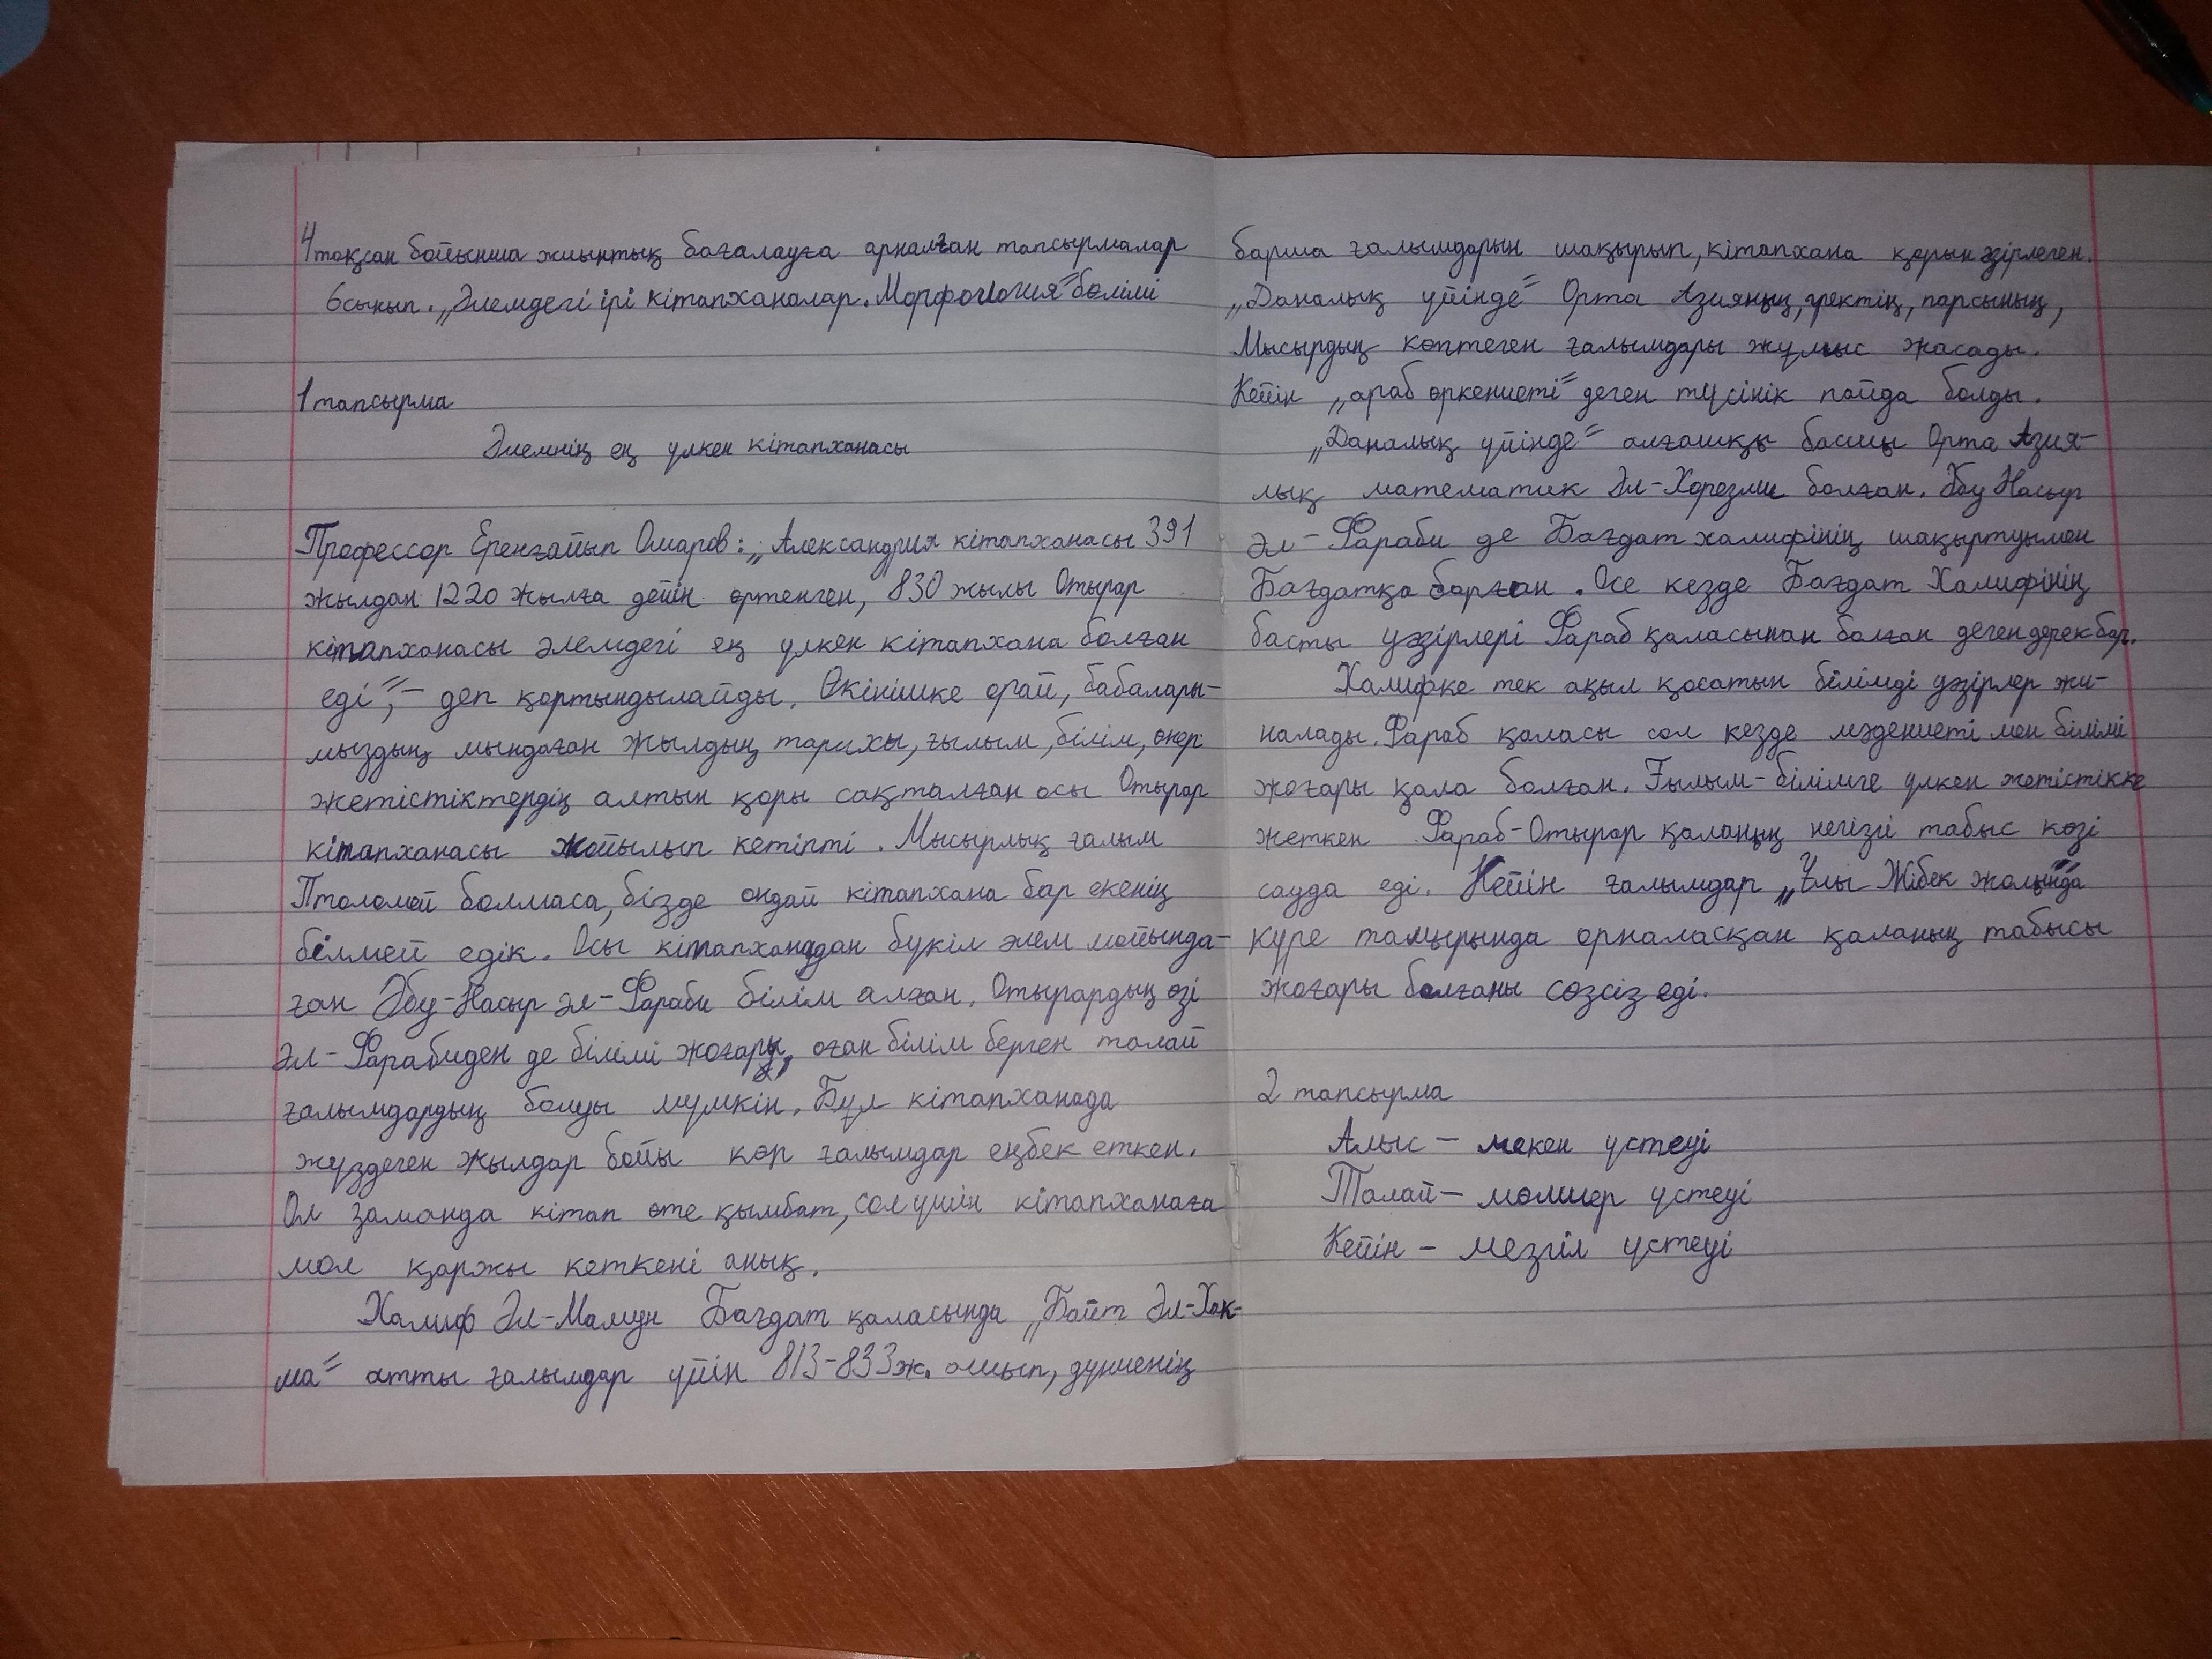 4 тоқсан бойынша жиынтық бағалауға арналған тапсырмалар
6 сынып. „Әлемдегі ірі кітапханалар. Морфология" бөлімі
1 тапсырма
Әлемнің ең үлкен кітапханасы
Профессор Еренғайып Омаров: „Александрия кітапханасы 391
жылдан 1220 жылға дейін өртенген, 830 жылы Отырар
кітапханасы әлемдегі ең үлкен кітапхана болған
еді", – деп қортындылайды. Өкінішке орай, бабалары-
мыздың мындаған жылдың тарихы, ғылым, білім, өнер
жетістіктердің алтын қоры сақталған осы Отырар
кітапханасы жойылып кетіпті. Мысырлық ғалым
Птоломей болмаса, бізде ондай кітапхана бар екенің
білмей едік. Осы кітапханадан бүкіл әлем мойында-
ған Әбу-Насыр әл-Фараби білім алған. Отырардың өзі
Әл-Фарабиден де білімі жоғары, оған білім берген талай
ғалымдардың болуы мүмкін. Бұл кітапханада
жүздеген жылдар бойы көп ғалымдар еңбек еткен.
Ол заманда кітап өте қымбат, сол үшін кітапханаға
мол қаржы кеткені анық.
Халиф Әл-Мамун Бағдат қаласында „Байт Әл-Хак-
ма" атты ғалымдар үйін 813-833 ж. ашып, дүниенің
барша ғалымдарын шақырып, кітапхана қорын әзірлеген.
„Даналық үйінде" Орта Азияның, гректің, парсының,
Мысырдың көптеген ғалымдары жұмыс жасады.
Кейін „араб өркениеті" деген түсінік пайда болды.
„Даналық үйінде" алғашқы басшы Орта Азия-
лық математик Әл-Хорезми болған. Әбу Насыр
әл-Фараби де Бағдат халифінің шақыртуымен
Бағдатқа барған. Осе кезде Бағдат Халифінің
басты уәзірлері Фараб қаласынан болған деген дерек бар.
Халифке тек ақыл қосатын білімді уәзірлер жи-
налады. Фараб қаласы сол кезде мәдениеті мен білімі
жоғары қала болған. Ғылым-білімге үлкен жетістікке
жеткен Фараб-Отырар қаланың негізгі табыс көзі
сауда еді. Кейін ғалымдар „Ұлы Жібек жолында"
күре тамырында орналасқан қаланың табысы
жоғары болғаны сөзсіз еді.
2 тапсырма
Алыс – мекен үстеуі
Талай – мөлшер үстеуі
Кейін – мезгіл үстеуі